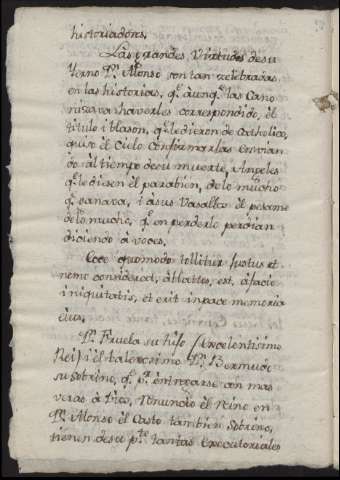 historiadores,
Las grandes Virtudes de su
Yerno Dn. Alonso son tan zelebradas
en las historias, qe. aunqe. las Cano
nizava haverles correspondido, el
titulo i blason, qe. le dieron de Catholico,
quiso el Cielo confirmarlas envian
do al tiempo de su muerte, Angeles
qe. le diesen el parabien, de lo mucho
qe. ganava, i à sus Vasallos el pesame
de lo mucho, qe. en perderle perdian
diciendo à voces,
Ecce quomodo tollitur Justus et
nemo considerat, ablattus, est, à facie
iniquitatis, et erit in pace memoria
eius.
Dn. Fruela su hijo (excelentisimo
Rei) i el talerosimo Dn. Bermudo
su Sobrino, qe. pr. entregarse con mas
veras à Dios, renuncio el Reino en
Dn. Alonso el Casto tambien Sobrino,
tienen de su pte. tantas Executoriales